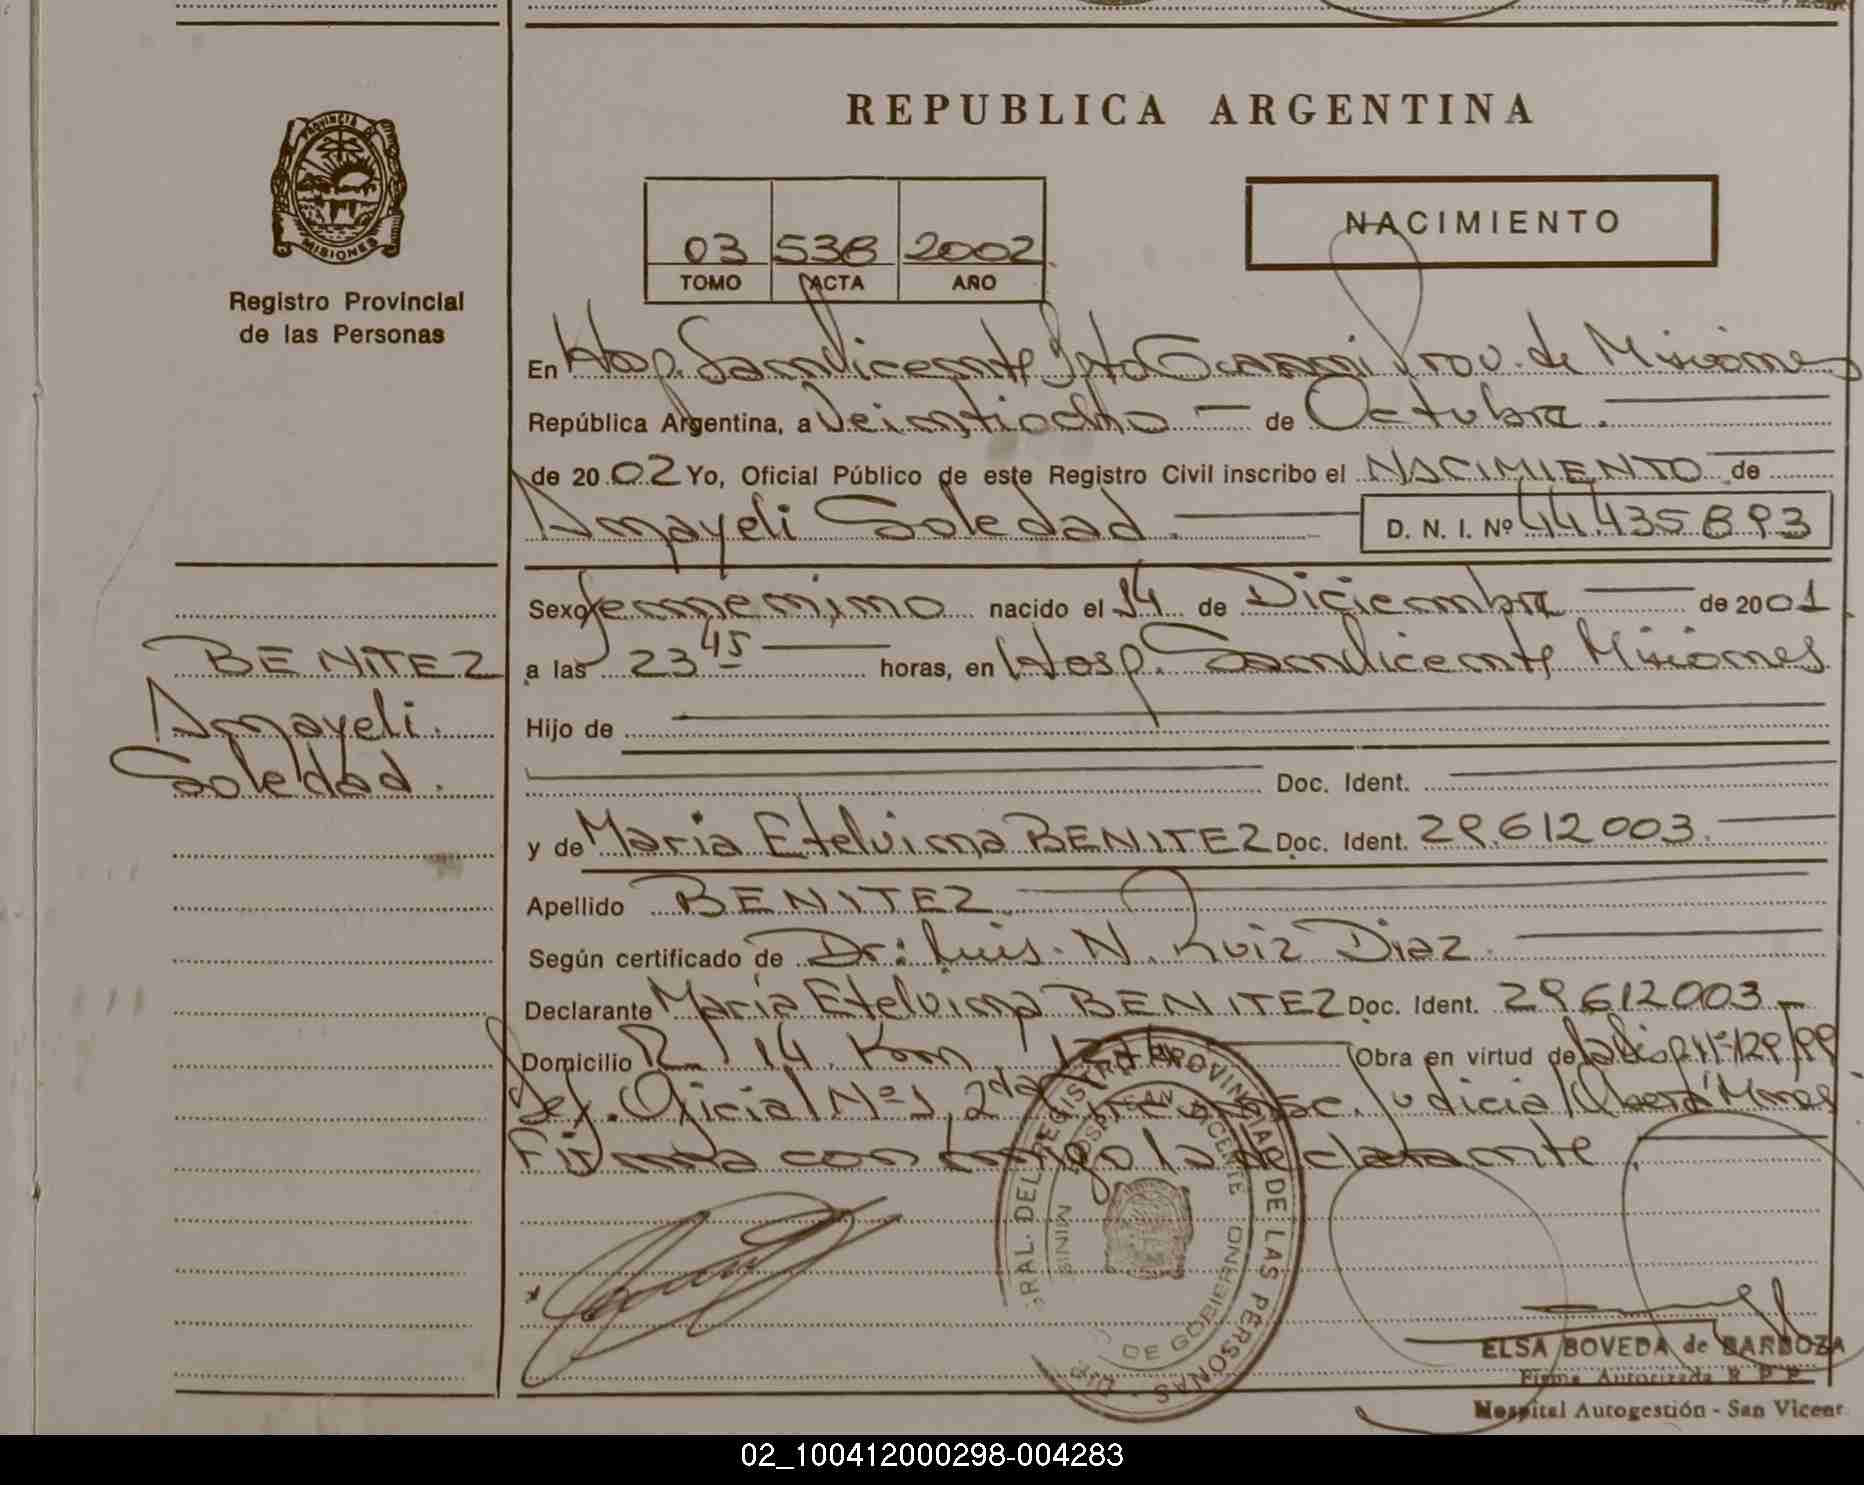 REPUBLICA ARGENTINA
PROVINCIA DE
MISIONES
Registro Provincial
de las Personas
NACIMIENTO
03 538 2002
TOMO ACTA AÑO
En Hosp. San Vicente Dpto Guaraní Prov. de Misiones
República Argentina, a Veintiocho — de Octubre.
de 2002 Yo, Oficial Público de este Registro Civil inscribo el NACIMIENTO de
Amayeli Soledad. D. N. I. Nº 44.435.893
Sexo femenino nacido el 14 de Diciembre de 2001
BENITEZ
Amayeli.
Soledad.
a las 23 45 horas, en Hosp. San Vicente Misiones
Hijo de
Doc. Ident.
y de Maria Etelvina BENITEZ Doc. Ident. 29.612003.
Apellido BENITEZ.
Según certificado de Dr: Luis. N. Ruiz Diaz.
Declarante María Etelvina BENITEZ Doc. Ident. 29.612003 —
Domicilio R. 14. Km. Obra en virtud de la Disp. Nº 129/99
Def. Oficial Nº 1, 2da Circunsc. Judicial Oberá Mnes
Firma conmigo la declarante.
DIR. GRAL. DEL REGISTRO PROVINCIAL DE LAS PERSONAS
HOSP. SAN VICENTE
DE GOBIERNO
ELSA BOVEDA de BARBOZA
Firma Autorizada R P P
Hospital Autogestión - San Vicent
02_100412000298-004283